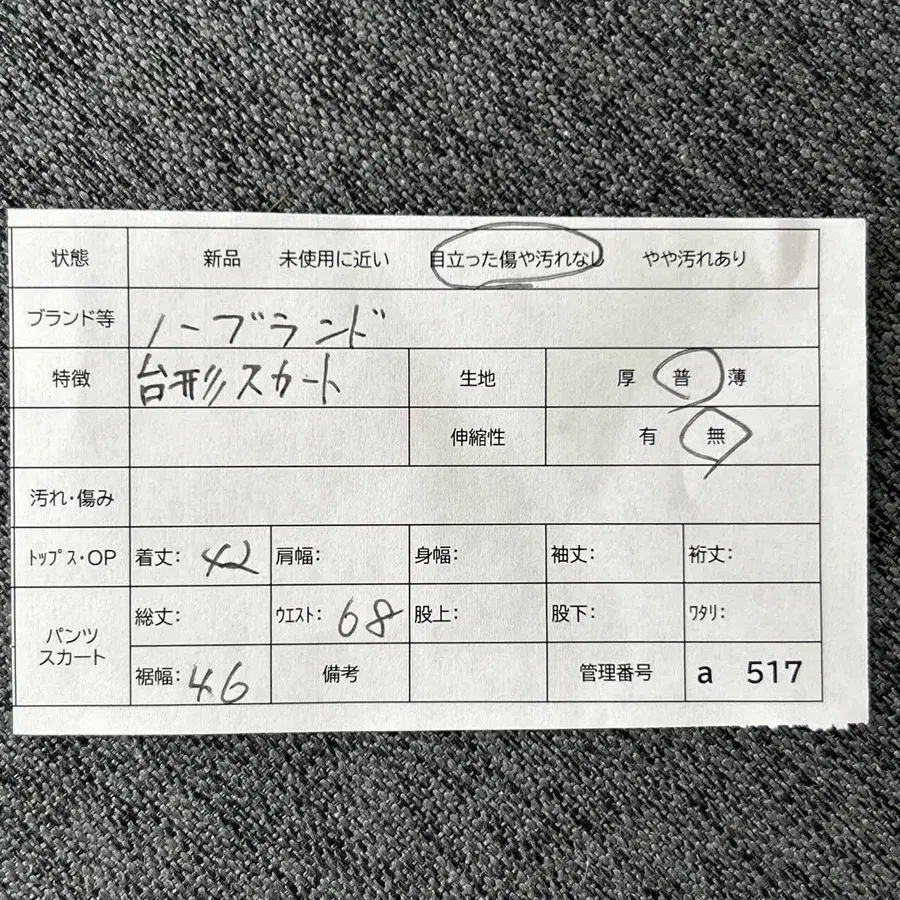 状態 新品 未使用に近い 目立った傷や汚れなし やや汚れあり
ブランド等 ノーブランド
特徴 台形スカート 生地 厚 普 薄
伸縮性 有 無
汚れ・傷み
トップス・OP 着丈: 42 肩幅: 身幅: 袖丈: 裄丈:
パンツ スカート 総丈: ウエスト: 68 股上: 股下: ワタリ:
裾幅: 46 備考 管理番号 a 517